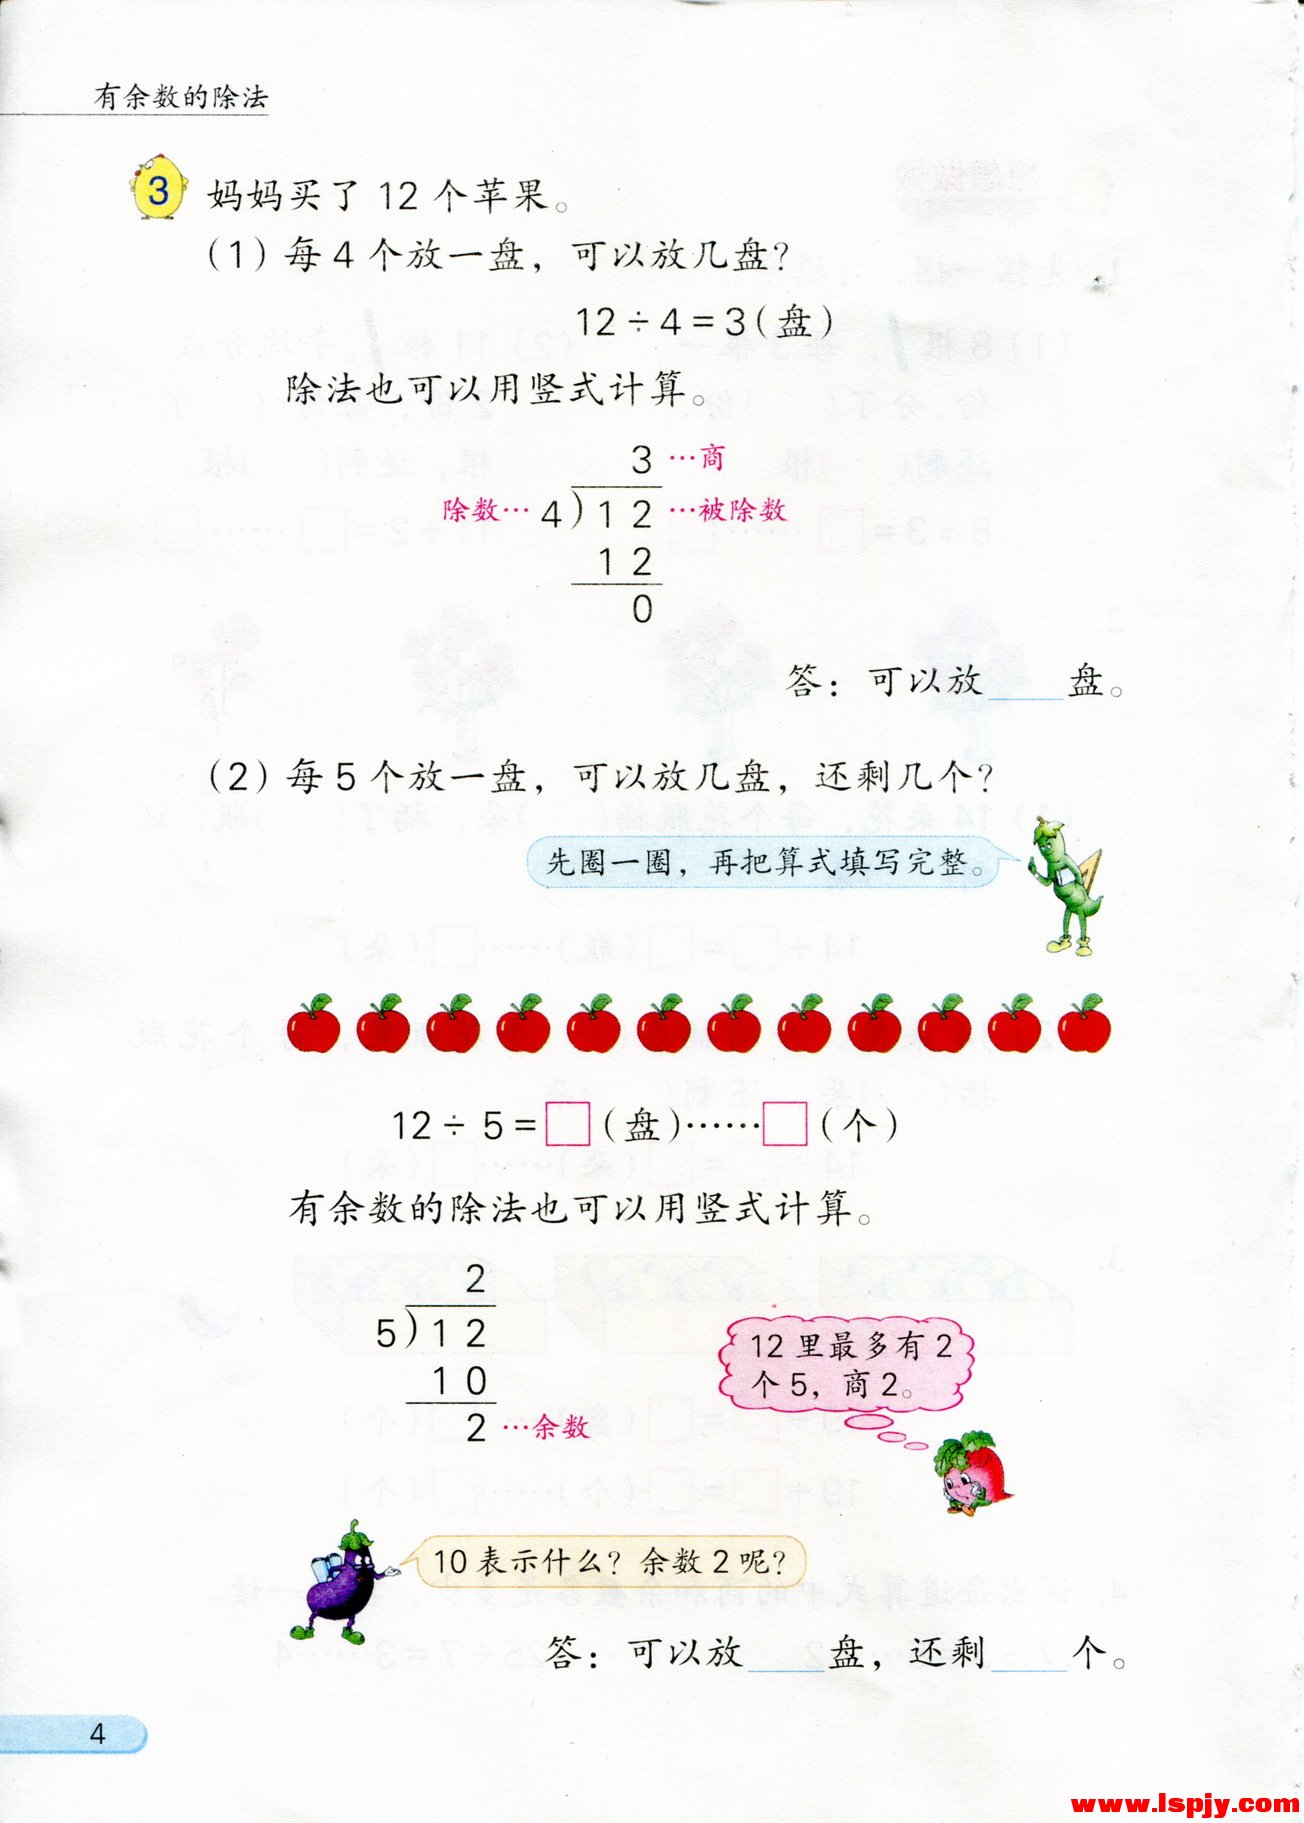 有余数的除法
3 妈妈买了 12 个苹果。
(1) 每 4 个放一盘，可以放几盘？
12÷4=3(盘)
除法也可以用竖式计算。
3 …商
除数… 4)12 …被除数
12
0
答：可以放____盘。
(2) 每 5 个放一盘，可以放几盘，还剩几个？
先圈一圈，再把算式填写完整。
12÷5=□(盘)……□(个)
有余数的除法也可以用竖式计算。
2
5)12
10
2 …余数
12 里最多有 2
个 5，商 2。
10 表示什么？余数 2 呢？
答：可以放____盘，还剩____个。
4
www.lspjy.com